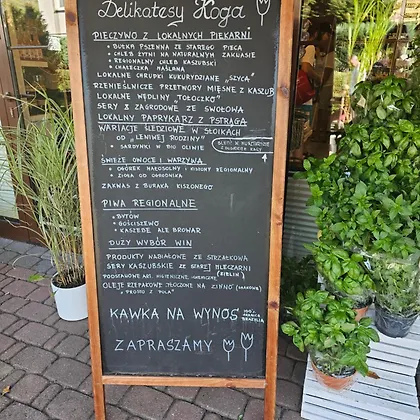 Delikatesy Koga
PIECZYWO Z LOKALNYCH PIEKARNI
• BUŁKA PSZENNA ZE STAREGO PIECA
• CHLEB ŻYTNI NA NATURALNYM ZAKWASIE
• REGIONALNY CHLEB KASZUBSKI
• CHAŁECZKA MAŚLANA
LOKALNE CHRUPKI KUKURYDZIANE „SZYCA"
RZEMIEŚLNICZE PRZETWORY MIĘSNE Z KASZUB
LOKALNE WĘDLINY "TOŁOCZKO"
SERY Z ZAGRODOWE ZE SWOŁOWA
LOKALNY PAPRYKARZ Z PSTRĄGA
WARIACJE ŚLEDZIOWE W SŁOIKACH
OD „LENIWEJ RODZINY"
• SARDYNKI W BIO OLIWIE
ŚLEDŹ W
ŚWIEŻE OWOCE I WARZYWA
• OGÓREK MAŁOSOLNY I KISZONY REGIONALNY
• ZIOŁA OD OGRODNIKA
ZAKWAS Z BURAKA KISZONEGO
PIWA REGIONALNE
• BYTÓW
• GOŚCISZEWO
• KASZEBE ALE BROWAR
DUŻY WYBÓR WIN
PRODUKTY NABIAŁOWE ZE STRZAŁKOWA
SERY KASZUBSKIE ZE STAREJ MLECZARNI
PODSTAWOWE ART. HIGIENICZNE-CHEMICZNE (BIELIN)
OLEJE RZEPAKOWE TŁOCZONE NA ZIMNO
• PROSTO Z "POLA"
KAWKA NA WYNOS 100% ARABICA BRAZYLIA
ZAPRASZAMY